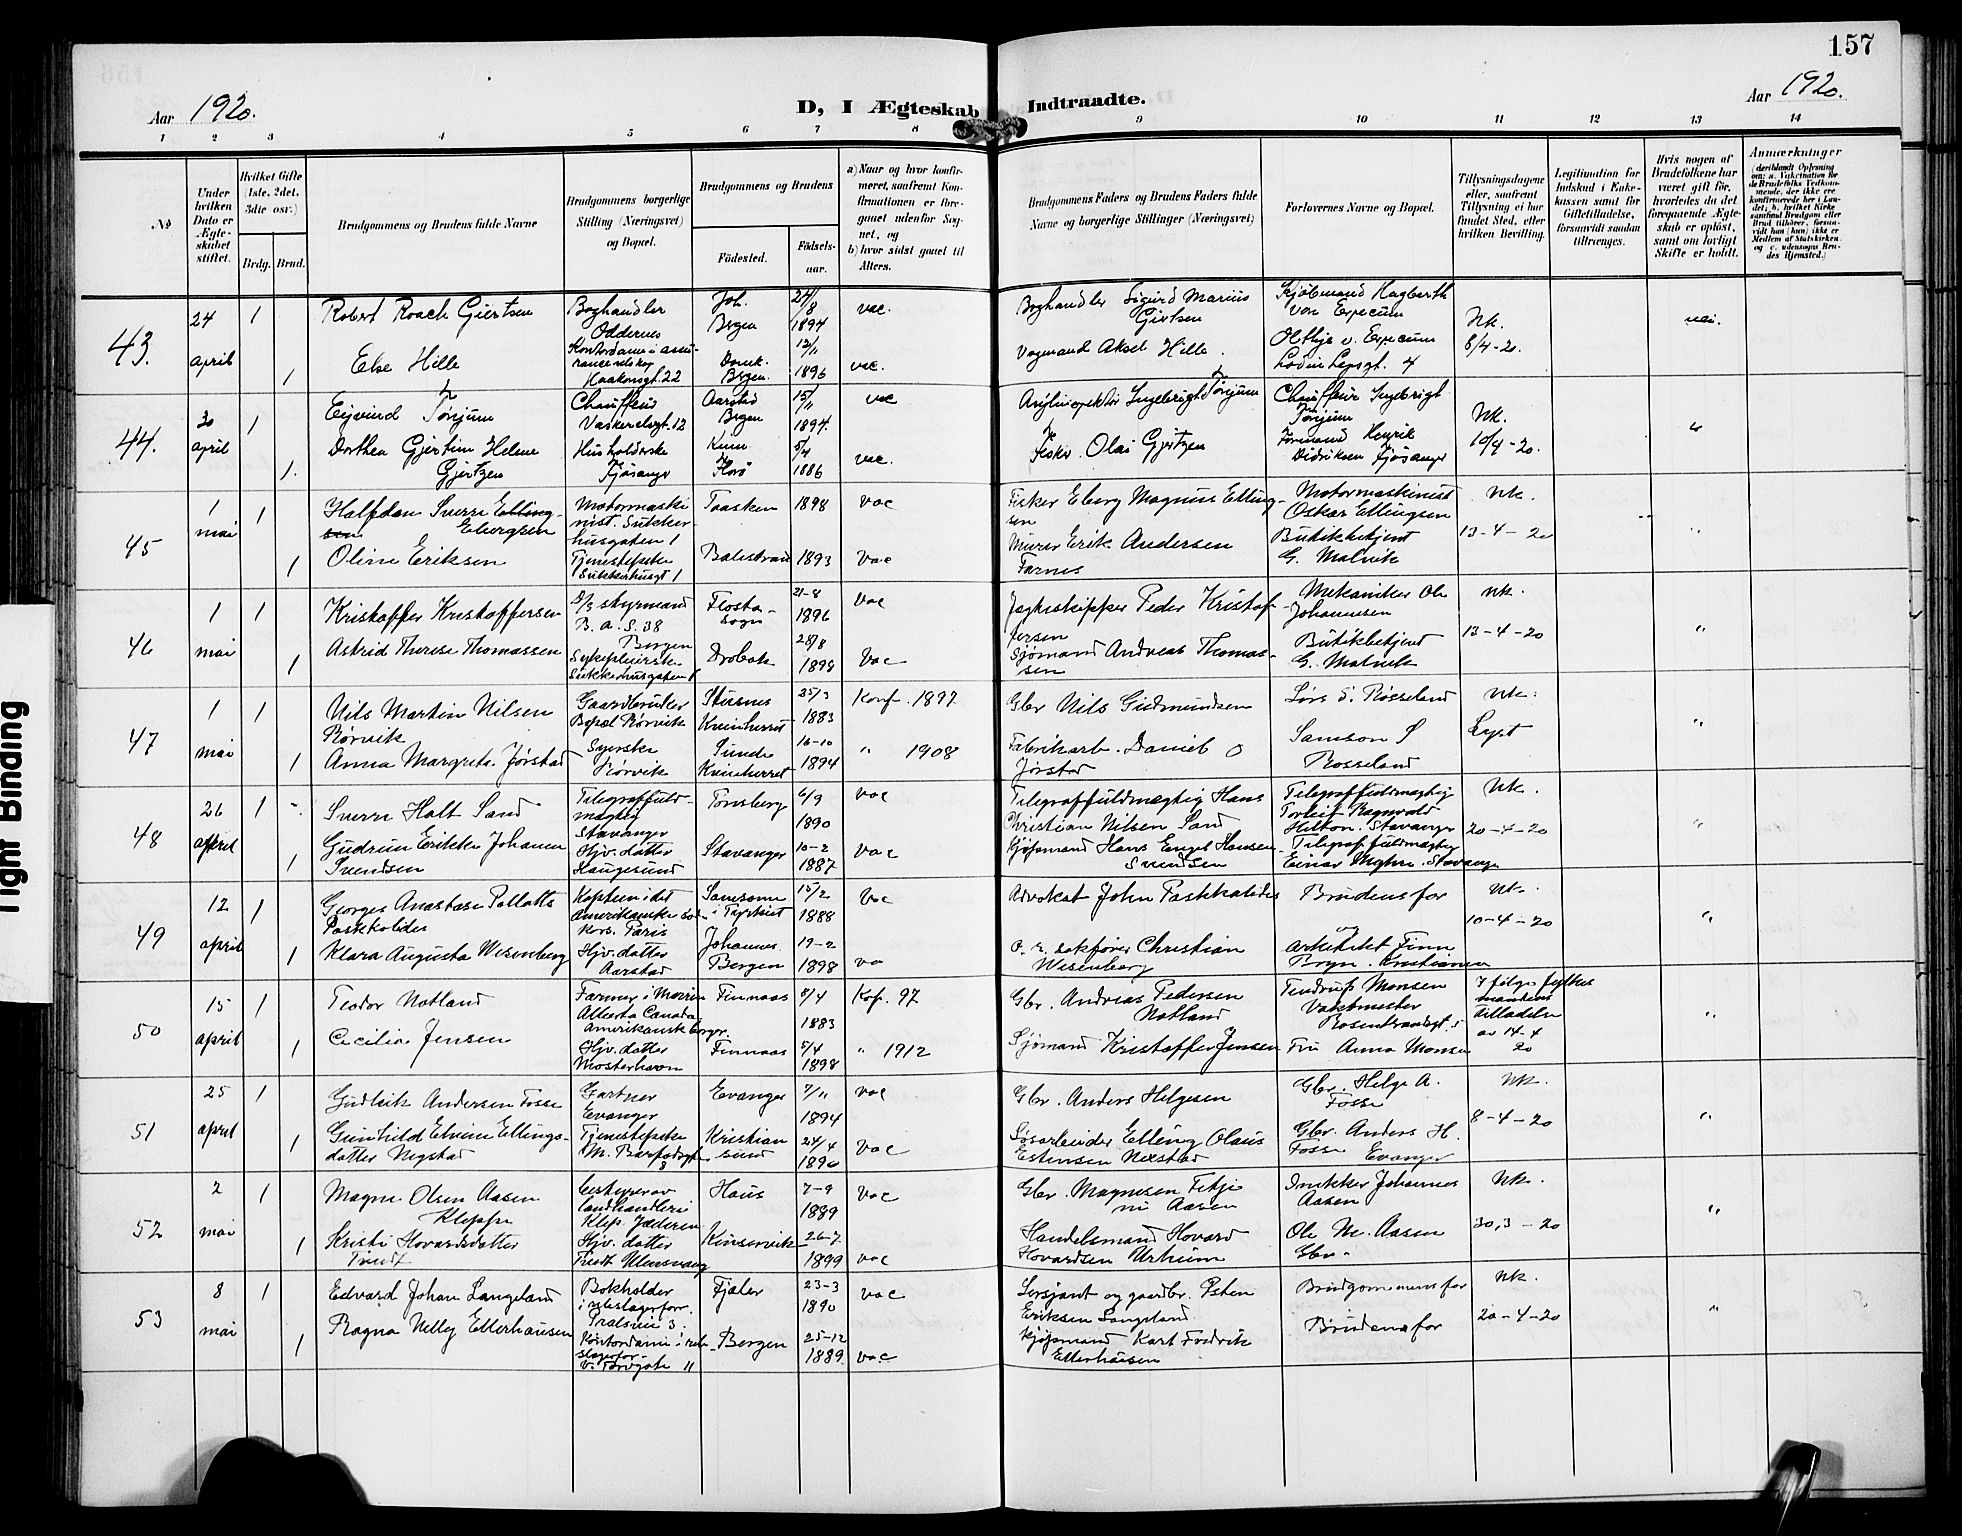 157
Aar 1920.
D, I Ægteskab Indtraadte.
Aar 1920.
1 2 3 4 5 6 7 8 9 10 11 12 13 14
No
Under hvilken Dato er Ægteskabet stiftet.
Hvilket Gifte (1ste, 2det, 3die osv.)
Brdg. Brud.
Brudgommens og Brudens fulde Navne
Brudgommens borgerlige Stilling (Næringsvei) og Bopæl.
Brudgommens og Brudens
Fødested.
Fødselsaar.
a) Naar og hvor konfirmeret, saafremt Konfirmationen er foregaaet udenfor Sognet, og
b) hvor sidst gaaet til Alters.
Brudgommens Faders og Brudens Faders fulde Navne og borgerlige Stillinger (Næringsvei)
Forlovernes Navne og Bopæl.
Tillysningsdagene eller, saafremt Tillysning ei har fundet Sted, efter hvilken Bevilling.
Legitimation for Indskud i Enkekassen samt for Giftetilladelse, forsaavidt saadan tiltrænges.
Hvis nogen af Brudefolkene har været gift før, hvorledes da det foregaaende Ægteskab er opløst, samt om lovligt Skifte er holdt.
Anmærkninger
43. 24 april 1 Robert Roach Giertsen Boghandler Oddernes Joh. Bergen 24/8 1894 vac. Boghandler Sigurd Marius Giertsen Kjøbmand Hagbarth von Erpecum Nk. 8/4-20. nei.
1 Else Hille Haakonsgt. 22 Domk. Bergen. 12/11 1896 vac. Vognmand Aksel Hille.
44. 30 april 1 Eyvind Tønjum Chauffeur Aarstad Bergen 15/11 1894. vac Ingebrigt Tønjum Chauffeur Ingebrigt Tønjum Nk. 10/4-20. "
1. Dorthea Gjertine Helene Gjertzen Husholderske Fjøsanger Kinn Florø 5/4 1886 vac. Fisker Olai Gjertzen Formand Henrik Didriksen Fjøsanger
45 1 mai 1 Halfdan Sverre Ellingsen Ebergsen Motormaskinist. Sukkerhusgaten 1 Taasken 1898 vac Fisker Eberg Magnus Ellingsen Motormaskinist Oskar Ellingsen Nk. 13-4-20 "
1 Oline Eriksen Tjenestepike Sukkerhusgt 1 Balestrand 1893 Vac Murer Erik Andersen Farnes Butikbetjent G. Malvik
46 1 mai 1 Kristoffer Kristoffersen D/S styrmand B.a.S. 38 Bergen Flosta sogn 21-8 1896 Vac Jagteskipper Peder Kristoffersen Mekaniker Ole Johannesen Nk. 13-4-20 "
1 Astrid Therese Thomassen Sykepleierske Sukkerhusgaten 1 Drøbak 28/8 1898 Vac Sjømand Andreas Thomassen Butikbetjend G. Malvik
47 1 mai 1 Nils Martin Nilsen Rørvik Gaardbruker Bopæl Rørvik Kvinherred 25/3 1883 Konf. 1897 Gbr Nils Gudmundsen Lars S. Rosseland Nk. Lyst "
1 Anna Margrete Jørstad Syerske Rørvik Sunde Kvinherret 16-10 1894 " 1908 Fabrikarb. Daniel O Jørstad Samson S Rosseland
48 26 april 1 Sverre Holt Sand Telegraffuldmægtig Stavanger Tønsberg 6/9 1890 vac Telegraffuldmægtig Hans Christian Nilsen Sand Telegraffuldmægtig Torleif Ragnvald Hilton. Stavanger Nk. 20-4-20 "
1 Gudrun Erikke Johanne Svendsen Hjv. datter Haugesund Stavanger 10-2 1887 Vac Kjøpmand Hans Engel Hansen Svendsen Telegraffuldmægtig Einar Stavanger
49 12 april 1 Georges Anastase Paskkalides Kaptein i det Amerikanske Kors. Paris Samsonn i Tyrkiet 15/2 1888 Vac Advokat John Paskkalides Brudens far Nk. 10-4-20 "
1 Klara Augusta Wesenberg Hjv. datter Aarstad Johannes. Bergen 19-2 1898 va O.r. sakfører Christian Wesenberg og arkitekt Finn Bryn. Kristiania
50 15 april 1 Teodor Notland Farmer i Morrin Alberta Canada, Amerikansk borger. Finnaas 8/4 1883 Kof. 97 Gbr. Andreas Pedersen Notland Tendrup Monsen Vaktmester Rosenkrandsgt. 5 I følge fylkesmandens tilladelse av 14-4 20 "
1 Cecilie Jensen Hjv. datter Mosterhavn Finnaas 5/4 1898 " 1912 Sjømand Kristoffer Jensen Fru Anna Monsen
51 25 april 1 Gudleik Andersen Fosse Gartner Evanger Evanger 7/11 1894 vac Gbr. Anders Helgesen Gbr. Helge A. Fosse Nk. 8-4-20 "
1 Gunhild Elvine Ellingsdatter Negstad Tjenestepike Kristiansund 24/4 1890 Vac Elling Olaus Estensen Gbr. Anders H. Fosse Evanger
52 2 mai 1 Magne Olsen Aasen Kleppe bestyrer av landhandleri Klep. Jæderen Haus 7-9 1889 Vac Gbr. Magnesen Aasen Snekker Johannes Aasen Nk. 30,3-20 "
1 Kristi Hovardsdatter Tvedt Hjv. datter Tvedt Ullensvang Kinservik 26-7 1899 vac Handelsmand Hovard Hovardsen Urheim Ole M. Aasen Gbr.
53 8 mai 1 Edvard Johan Langeland Bokholder i rebslagerforr. 3. Fjaler 23-3 1890 vac Sersjant og gaardbr. Peten Eriksen Langeland Brudgommens far Nk. 20-4-20 "
1 Ragna Nelly Ellerhausen Kontordame i rebslagerfor. V. Torvgate 11 Bergen 25-12 1889. vac Kjøpmand Karl Fredrik Ellerhausen Brudens far
Tight Binding